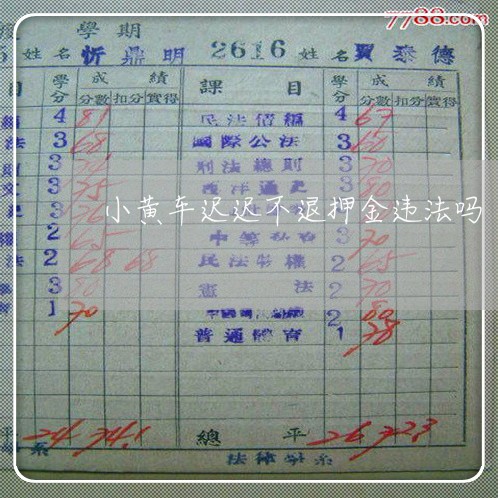 7788.com
學期
姓名 忻鼎明 2616 姓名 賈泰德
目 學分 成績 課目 學分 成績
分數 扣分 實得 分數 扣分 實得
4 81 民法債編 4 67
法 3 68 國際公法 3 60
3 刑法總則 3 70
3 75 西洋通史 3 80
小黄车迟迟不退押金违法吗
2 65 3 70
法 2 68 68 民法物權 2 65
3 80 憲法 2 70
1 70 2 80
普通體育 1 78
平 24 74.1 總平 26 72.3
系 法律學系